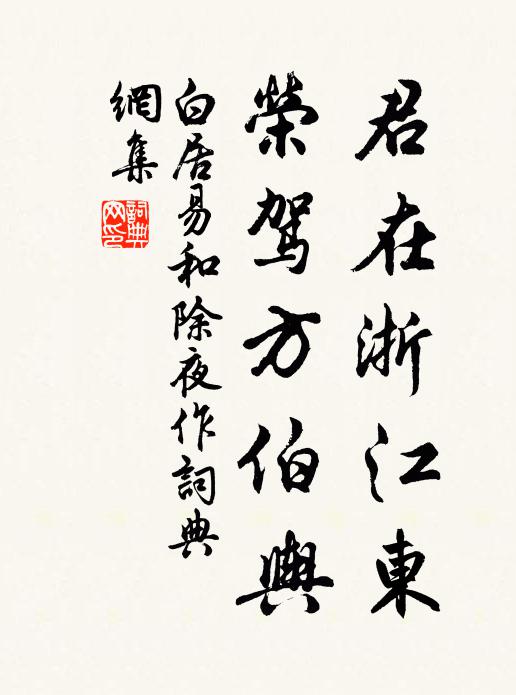 君在浙江東
榮駕方伯輿
白居易和除夜作詞典
網集
詞典網印